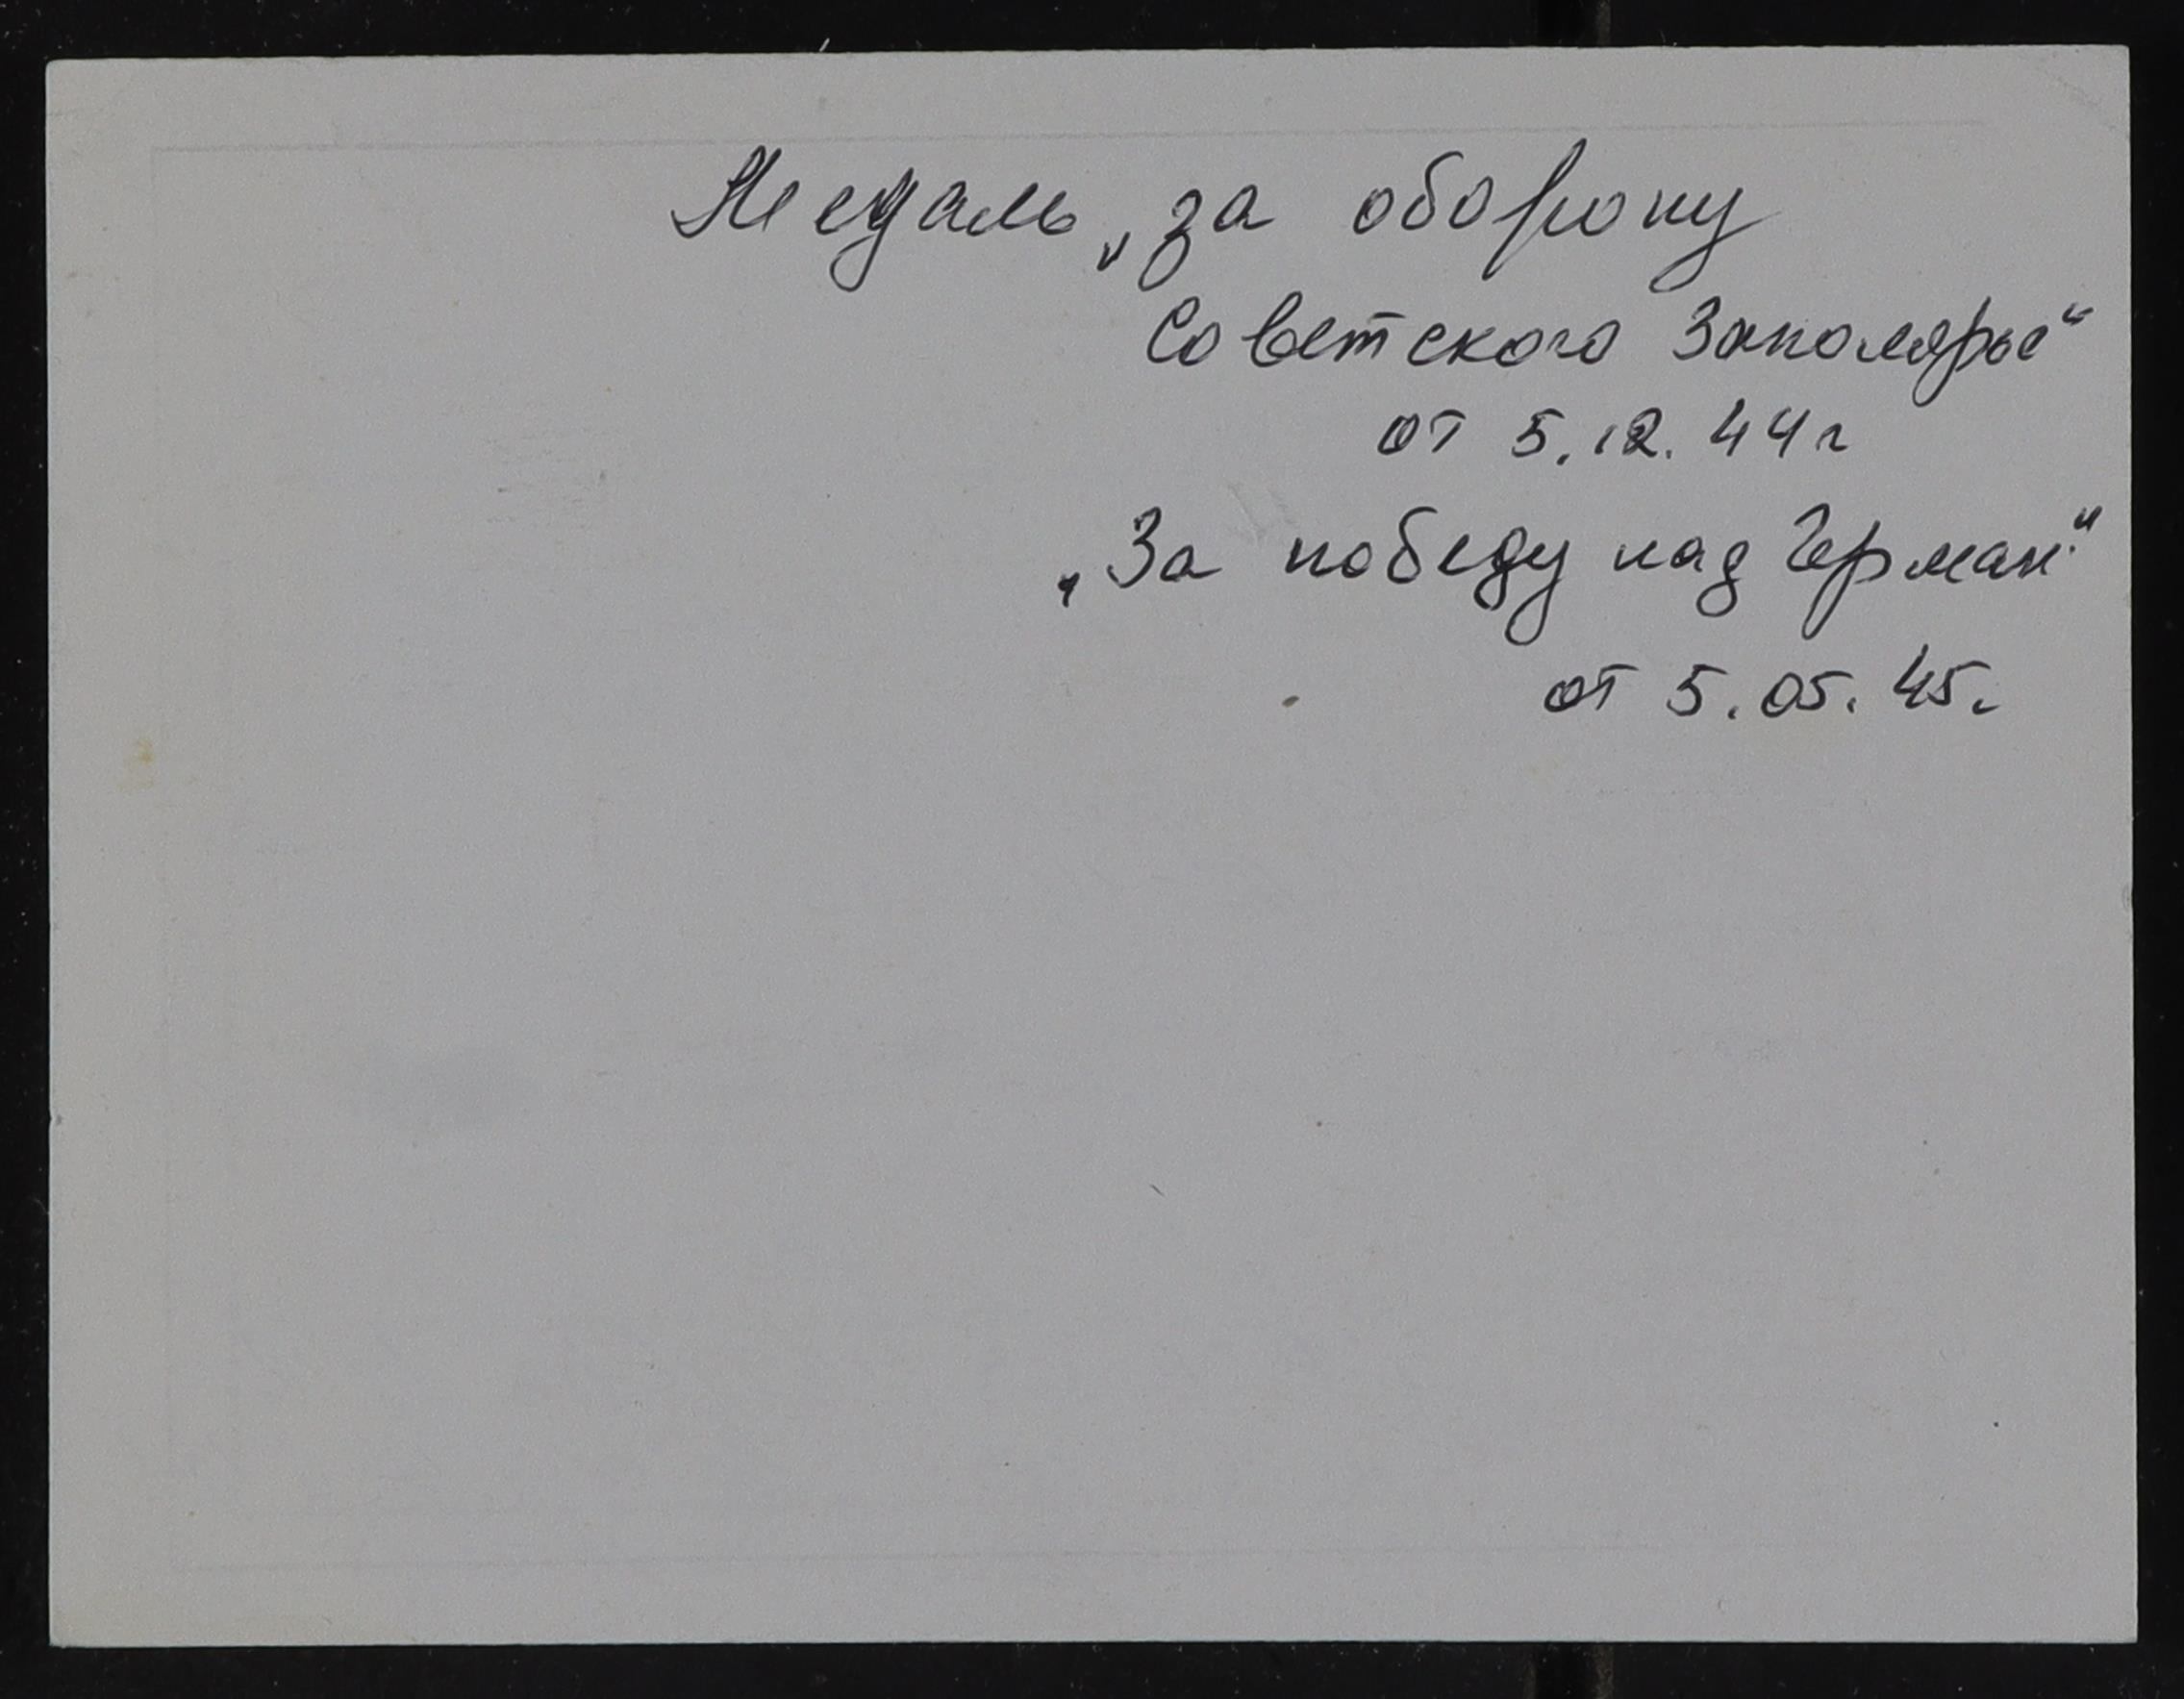 Медаль „за оборону
Советского Заполярье“
от 5.12.44г
„За победу над Герман.“
от 5.05.45.